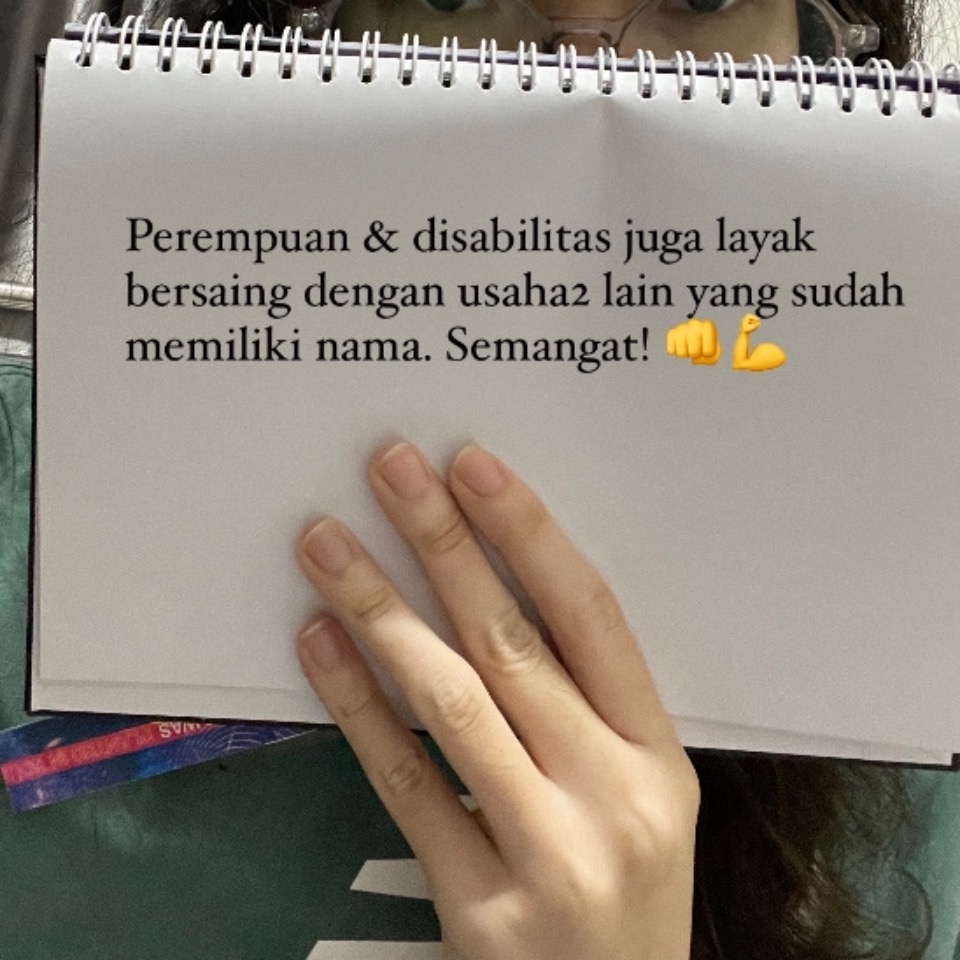 Perempuan & disabilitas juga layak
bersaing dengan usaha2 lain yang sudah
memiliki nama. Semangat! 👊💪